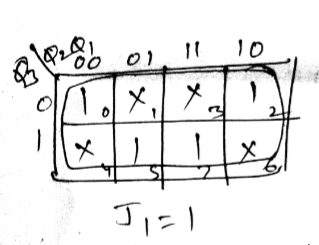 Q3 Q2Q1
00 01 11 10
0 1 0 X 1 X 3 1 2
1 X 4 1 5 1 7 X 6
J1=1